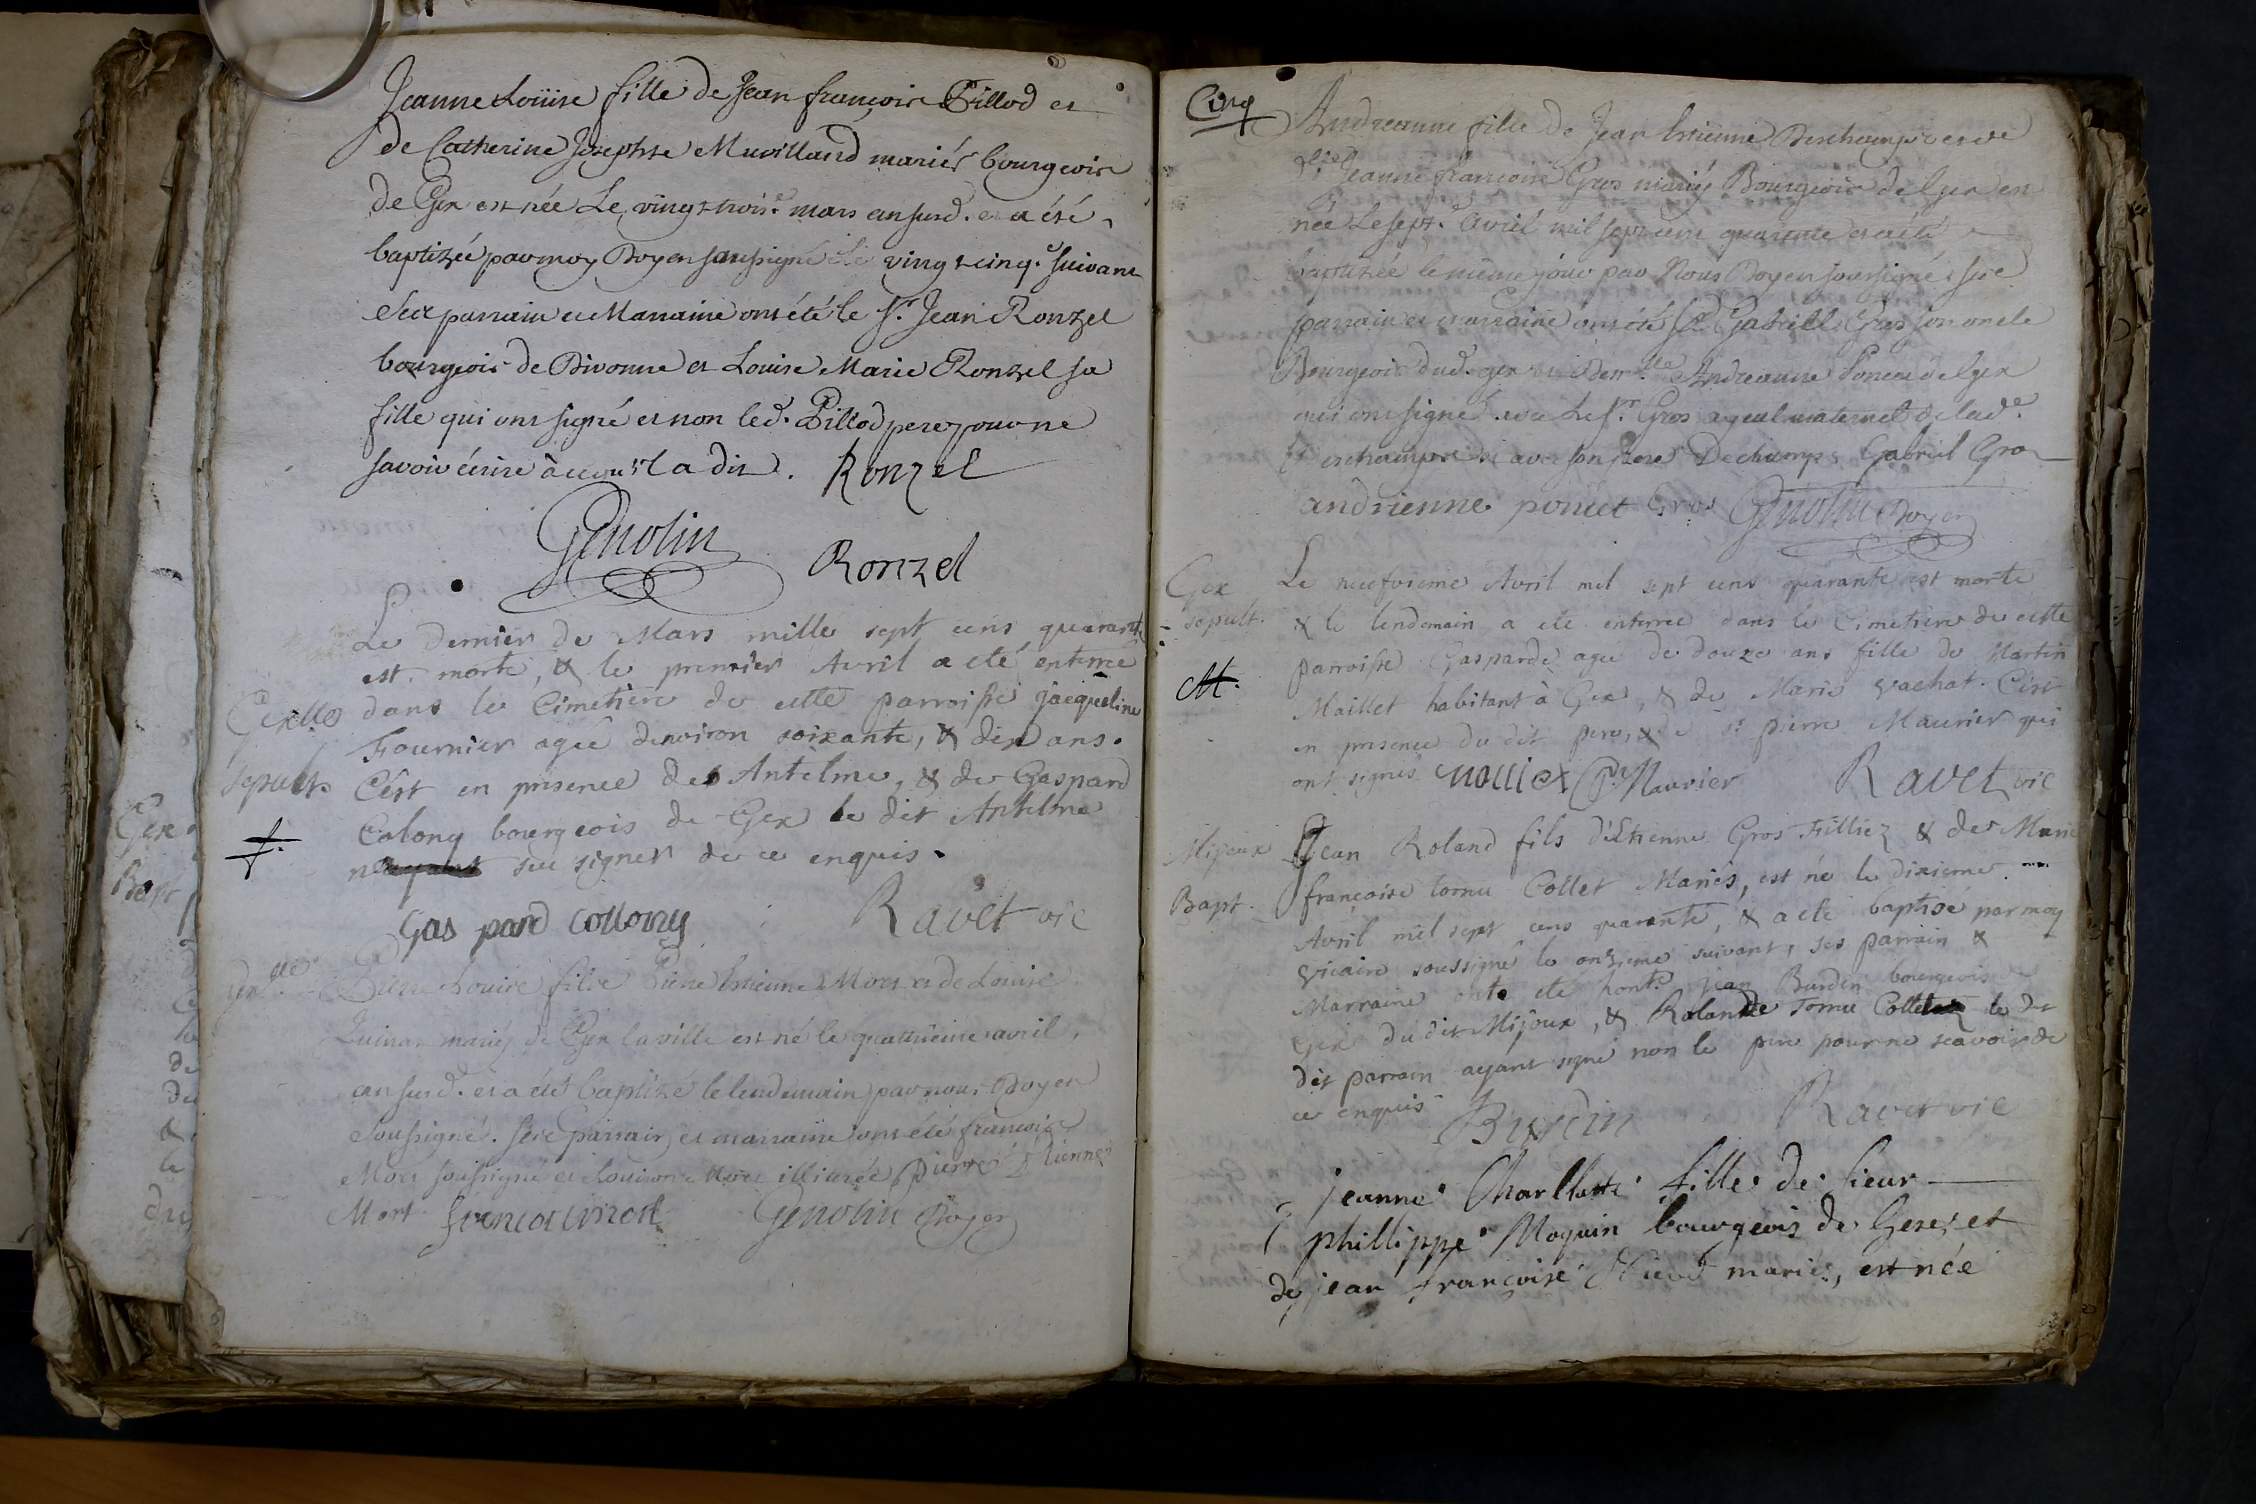 Jeanne Loüise fille de Jean françois Pillod et
de Catherine Josephte Muvilland mariés bourgeois
de Gex est née Le vingt trois.e mars an susd. et a été
baptizée par moy Doyen soussigné le vingt cinq.e suivant
Ses parrain et Marraine ont été le Sr. Jean Ronzel
bourgeois de Divonne et Louise Marie Ronzel sa
fille qui ont signé et non led. Pillod pere pour ne
savoir écrire à ce qu'il a dit. Ronzel
Genolin
Ronzel
Le dernier de Mars mille sept cens quarante
est morte, & le premier Avril a eté enterrée
dans le Cimetiere de cette parroisse jacqueline
Fournier agée denviron soixante, & dix ans.
C'est en presence des Antelme, & de Gaspard
Colony bourgeois de Gex le dit Antelme
sceu signer de ce enquis.
Gex
sepult.
f.
Gas pard collony Ravet vic
Pierre Louise filie Pierre Estienne Mort et de Louise
mariés de Gex la ville est né le quattrieme avril
an susd. et a été baptizé le lendemain par nous Doyen
Soussigné. Ses parrain et marraine ont été françois
Mort soussigné et Louison Mort illiterée pierre Etienne
Mort francoi mort Genolin Doyen
Gex
Bapt
Cinq
Andreanne fille de Jean Estienne Deschamps et de
D.lle Jeanne francoise Gros mariés Bourgeois de Gex est
née Le sept.e Avril mil sept cens quarante et a été
baptizée le même jour par Nous Doyen soussigné ses
parrain et marraine ont été Sr Gabriel Gros son oncle
Bourgeois dud. Gex et Dem.lle Andreanne Poncet de Gex
qui ont signé avec Le Sr. Gros ayeul maternel de lad.e
Deschamps et avec son pere Dechamps Gabriel Gros
andrienne poncet Gros Genolin Doyen
Gex
sepult.
M.
Le neufvieme Avril mil sept cens quarante est morte
& le lendemain a eté enterree dans le Cimetiere de cette
parroisse Gasparde agee de douze ans fille de Martin
Maillet habitant à Gex, & de Marie Vachat. C'est
en presence du dit pere, & de sr pierre Maurier qui
ont signés molliet P. Maurier Ravet vic
Mijoux
Bapt.
Jean Roland fils d'Etienne Gros Filliez & de Marie
françoise tornu Collet Mariés, est né le dixieme
Avril mil sept cens quarante, & a eté baptisé par moy
vicaire soussigné le onzieme suivant, ses parrain &
Marraine ont eté hont.e jean Burdin bourgeois de
Gex du dit Mijoux, & Rolande Tornu Collet le dit
dit parrain ayant signé non le pere pour ne sçavoir de
ce enquis Burdin Ravet vic
jeanne Charllotte fille de sieur
phillippe Moquin bourgeois de Gex, et
de jean françoise mariés, est née